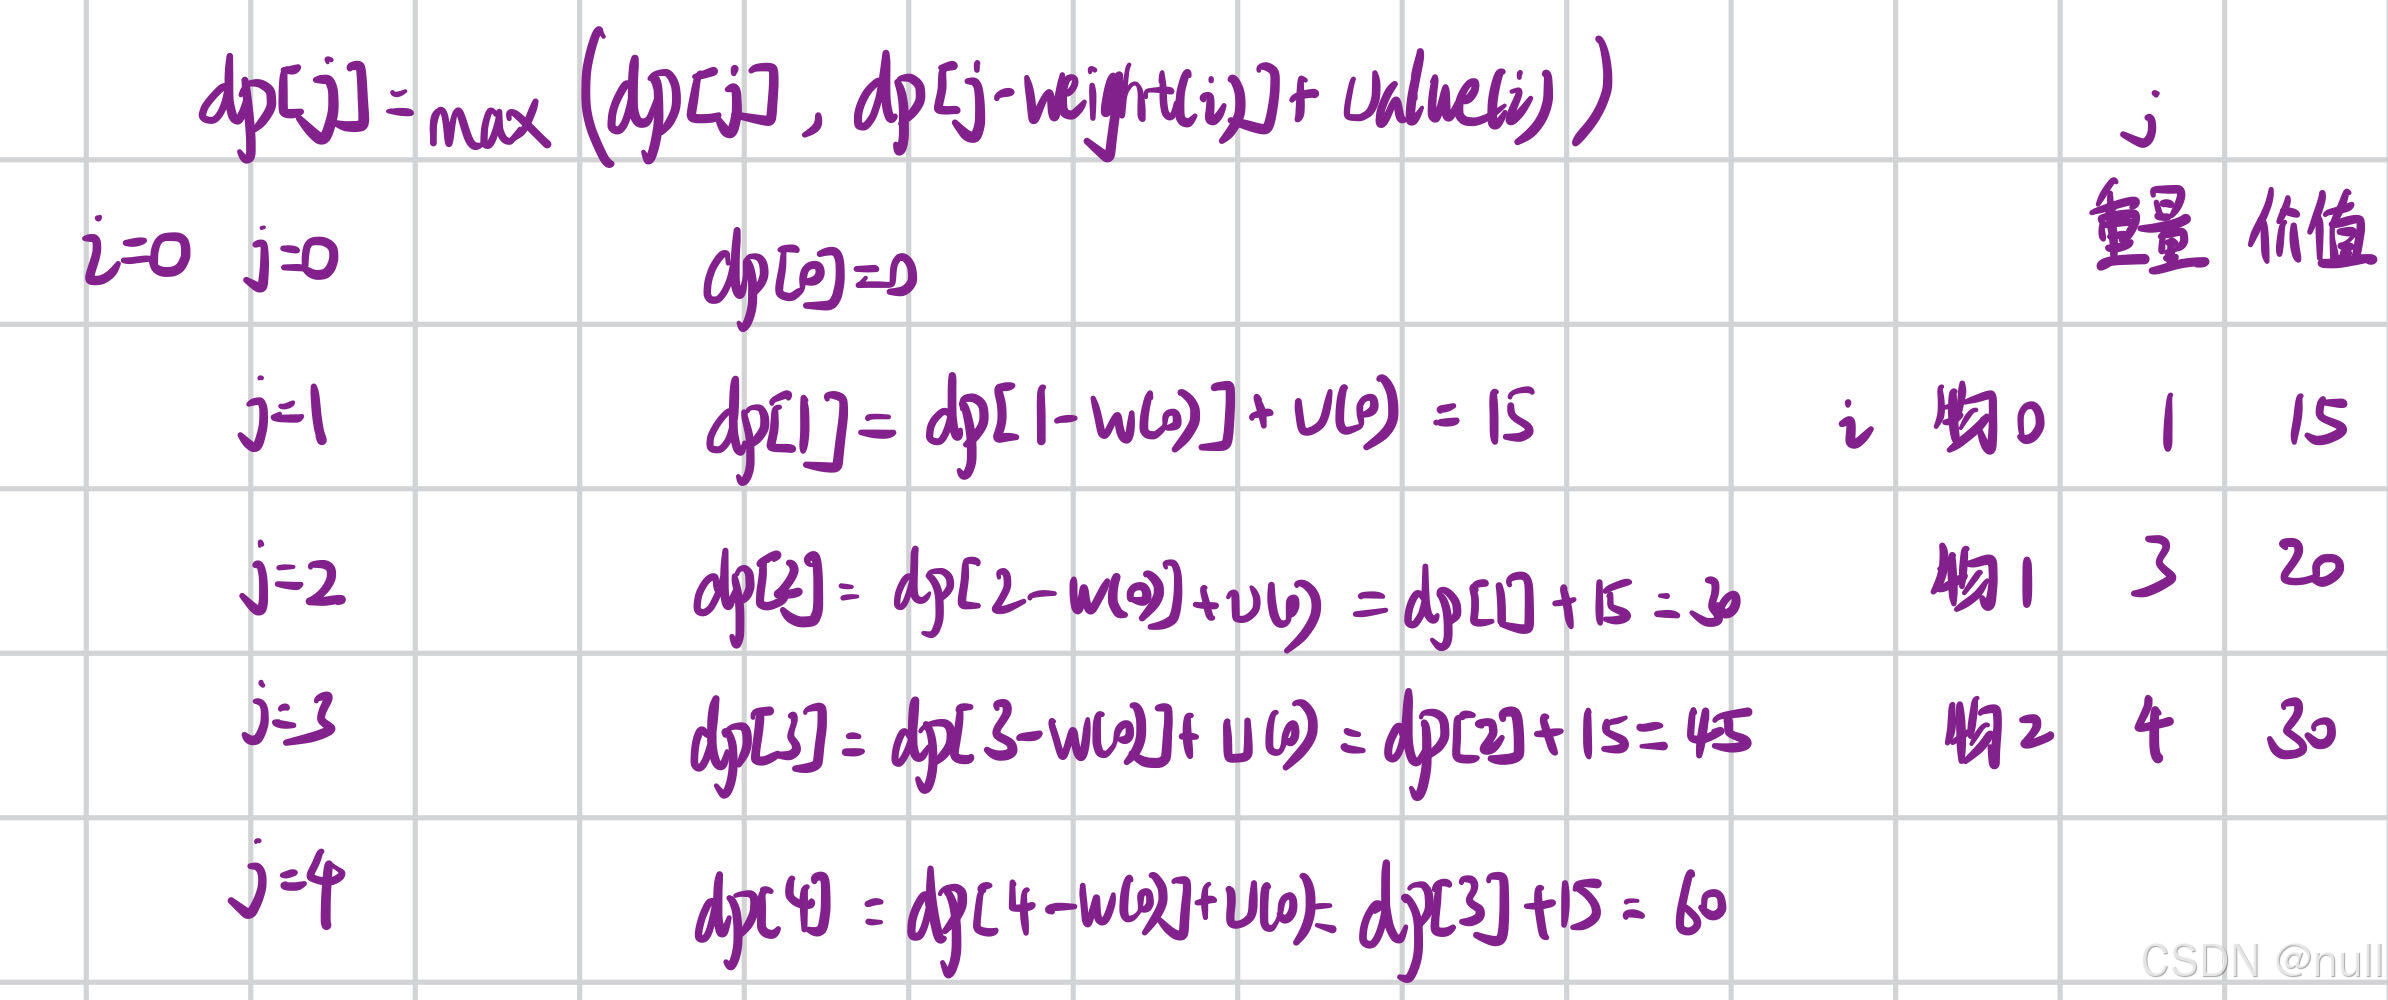 dp[j]=max(dp[j], dp[j-weight(i)]+value(i))
j
重量 价值
i=0 j=0 dp[0]=0
j=1 dp[1]=dp[1-w(0)]+v(0)=15 i 物0 1 15
j=2 dp[2]=dp[2-w(0)]+v(0)=dp[1]+15=30 物1 3 20
j=3 dp[3]=dp[3-w(0)]+v(0)=dp[2]+15=45 物2 4 30
j=4 dp[4]=dp[4-w(0)]+v(0)=dp[3]+15=60
CSDN @null